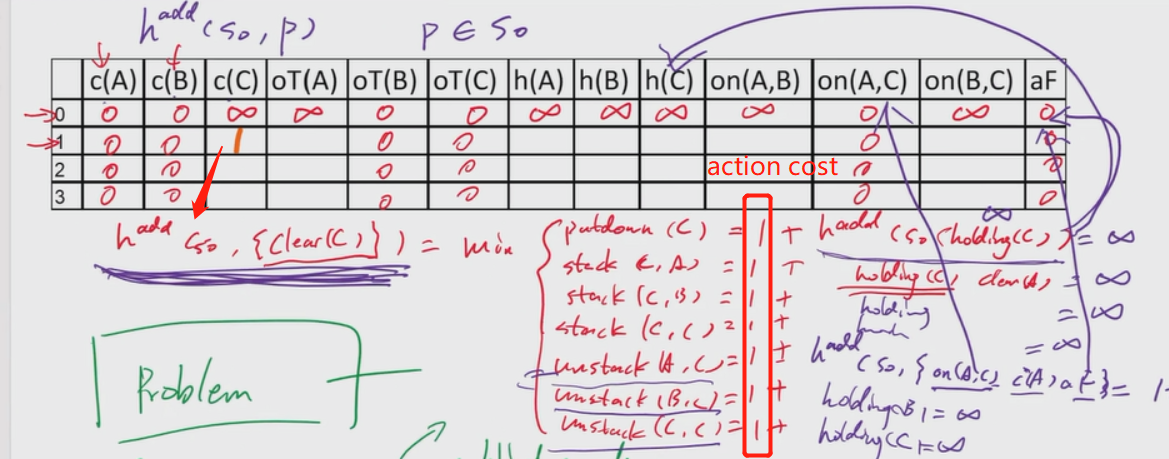 h^add (s₀, p) p ∈ s₀
c(A) c(B) c(C) oT(A) oT(B) oT(C) h(A) h(B) h(C) on(A,B) on(A,C) on(B,C) aF
0 0 0 ∞ ∞ 0 0 ∞ ∞ ∞ ∞ 0 ∞ 0
1 0 0 1 0 0 0 0
2 0 0 0 0 0 0
3 0 0 0 0 0 0
action cost
∞
h^add (s₀, {clear(C)}) = min
putdown (C) = 1 + hadd (s₀ (holding(C)) = ∞
stack (C, A) = 1 + holding(C) clear(A) = ∞
stack (C, B) = 1 + holding = ∞
stack (C, C) = 1 + = ∞
unstack (A, C) = 1 + h^add (s₀, {on(A,C) c(A) aF} = 1
unstack (B, C) = 1 + holding(B) = ∞
unstack (C, C) = 1 + holding(C) = ∞
Problem